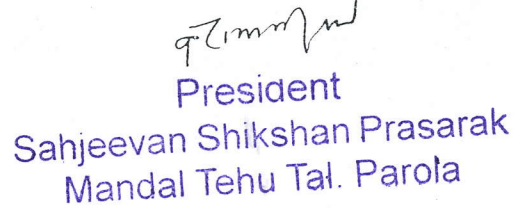 President
Sahjeevan Shikshan Prasarak
Mandal Tehu Tal. Parola